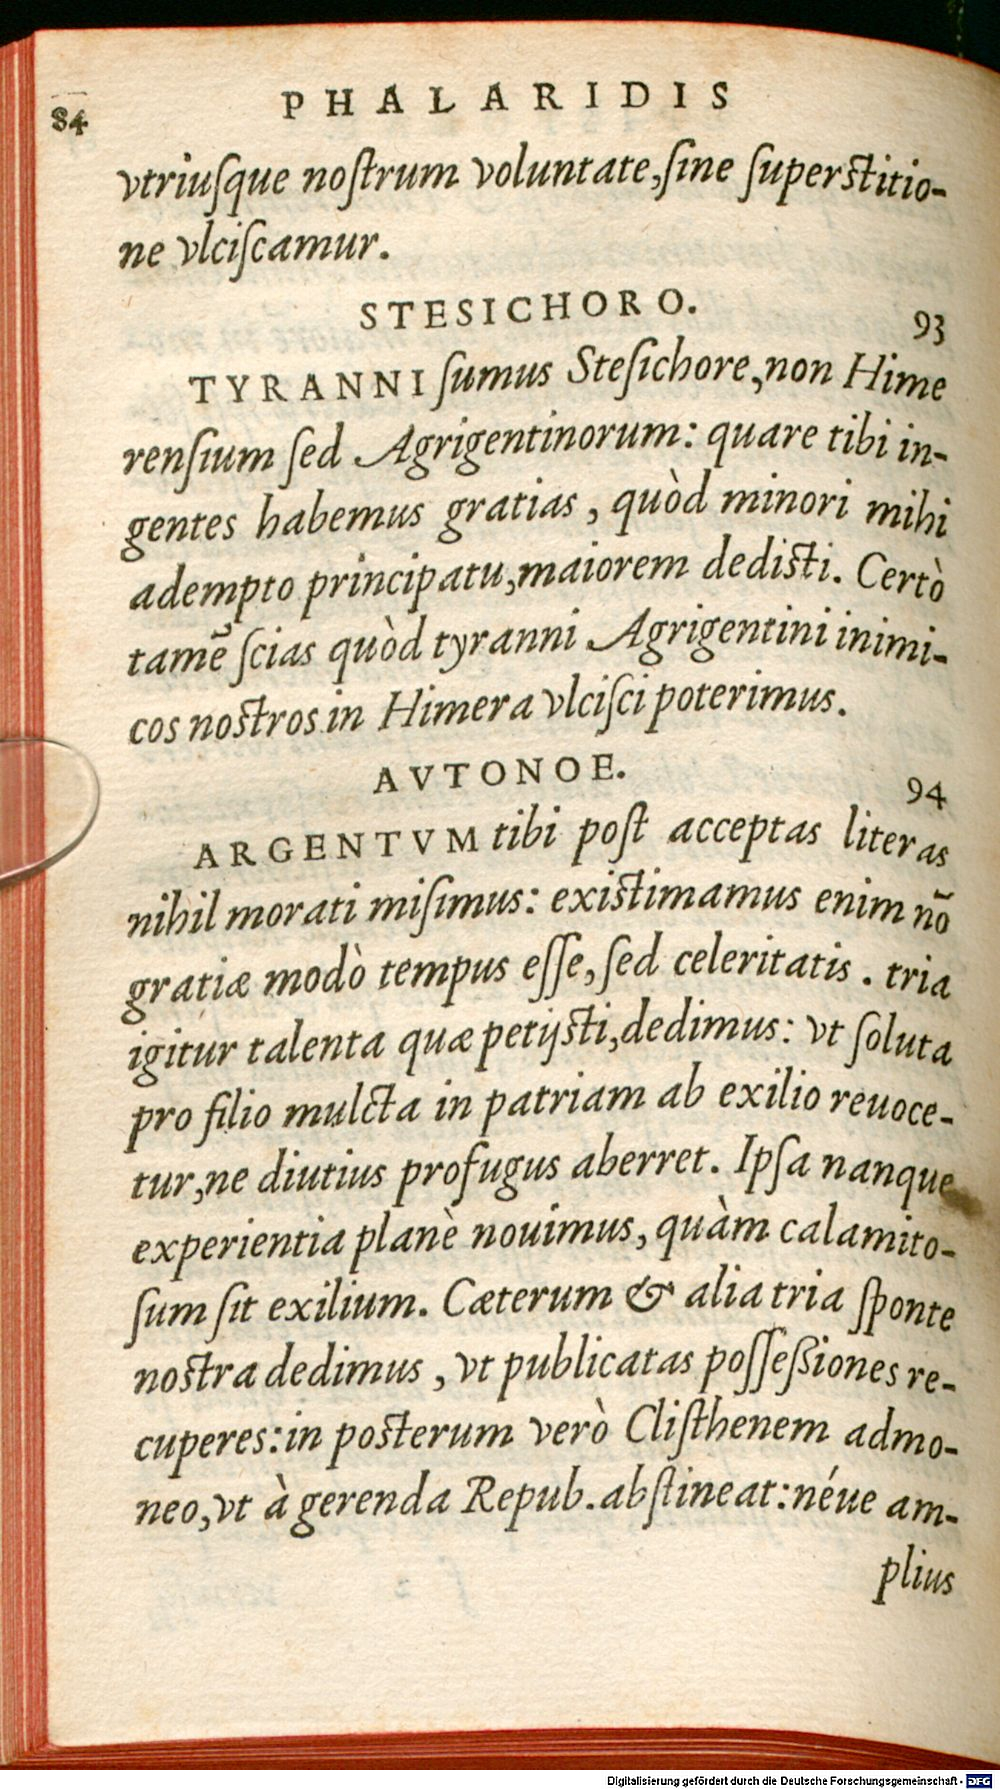 84
PHALARIDIS
vtriuſque noſtrum voluntate, ſine ſuperſtitio-
ne vlciſcamur.
STESICHORO.
93
TYRANNI ſumus Steſichore, non Hime
renſium ſed Agrigentinorum: quare tibi in-
gentes habemus gratias, quòd minori mihi
adempto principatu, maiorem dediſti. Certò
tamẽ ſcias quòd tyranni Agrigentini inimi-
cos noſtros in Himera vlciſci poterimus.
AVTONOE.
94
ARGENTVM tibi poſt acceptas literas
nihil morati miſimus: exiſtimamus enim nõ
gratiæ modò tempus eſſe, ſed celeritatis. tria
igitur talenta quæ petijſti, dedimus: vt ſoluta
pro filio mulcta in patriam ab exilio reuoce-
tur, ne diutius profugus aberret. Ipſa nanque
experientia planè nouimus, quàm calamito-
ſum ſit exilium. Cæterum & alia tria ſponte
noſtra dedimus, vt publicatas poſſeßiones re-
cuperes: in poſterum verò Cliſthenem admo-
neo, vt à gerenda Repub. abſtineat: néue am-
plius
Digitalisierung gefördert durch die Deutsche Forschungsgemeinschaft - DFG